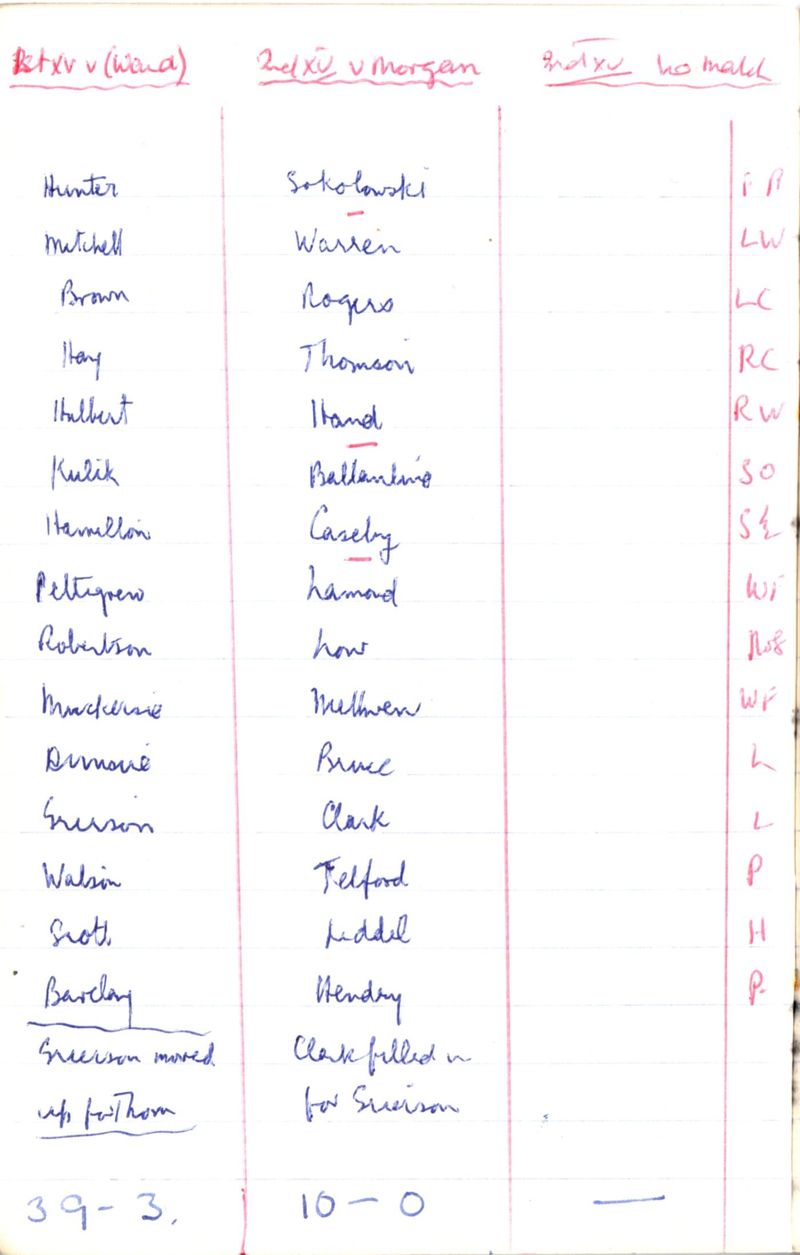 1st XV v (Ward) 2nd XV v Morgan 3rd XV no match
Hunter Sokolowski
Mitchell Warren LW
Brown Rogers LC
Hay Thomson RC
Hulbert Hand RW
Kulik Ballantine SO
Hamilton Caseby
Pettigrew Lamond WF
Robertson Low No8
Muckersie Methven WF
Bruce L
Grierson Clark L
Watson Telford P
Scott Liddel H
Barclay Hendry P.
Grierson moved Clark filled in
up for Thom for Grierson
39-3. 10-0 —